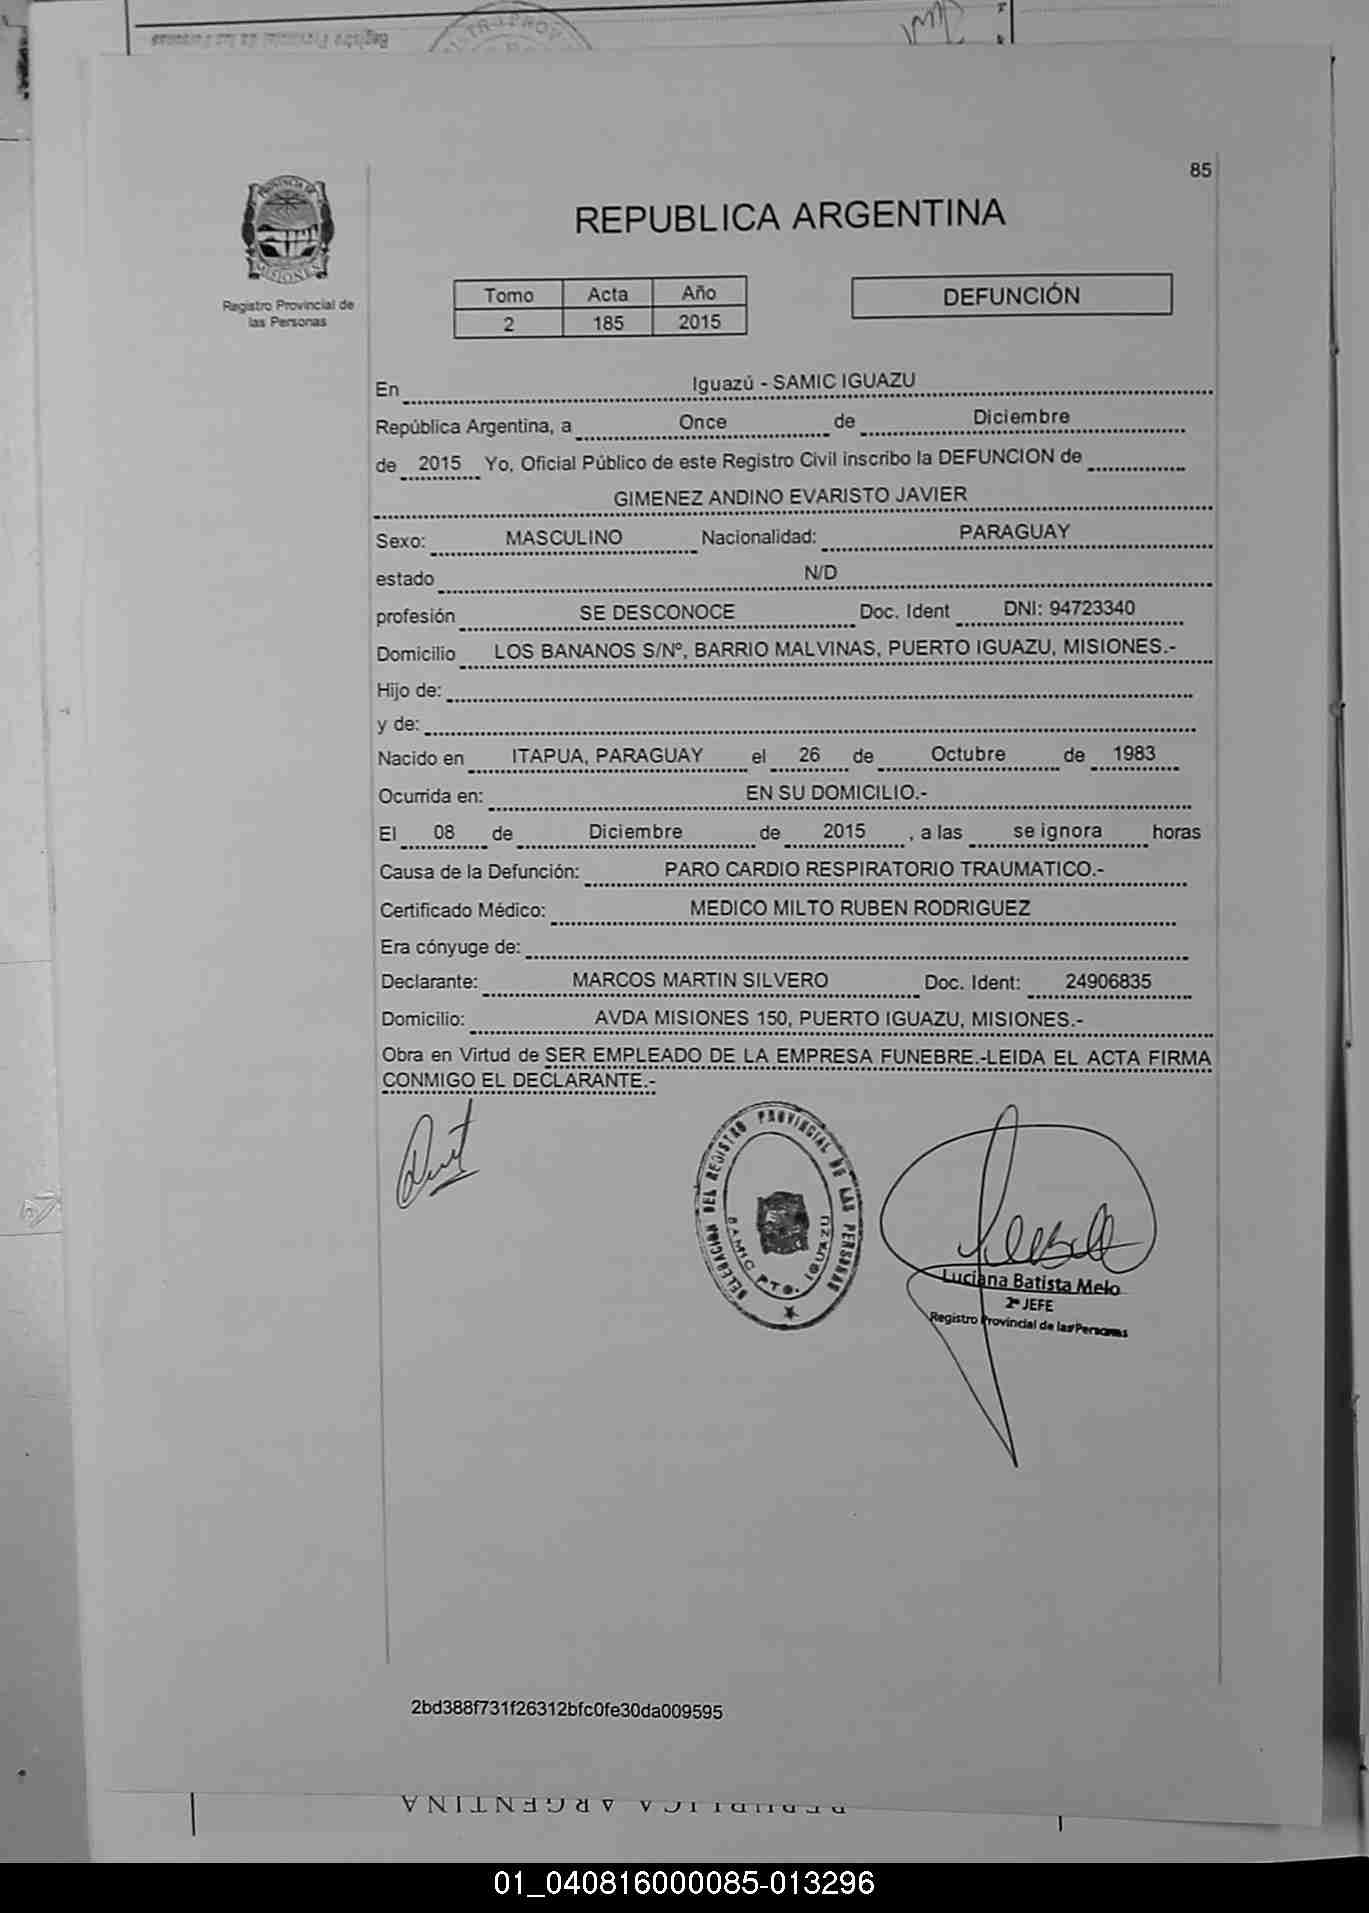 Registro Provincial de las Personas
85
PROVINCIA DE
MISIONES
Registro Provincial de
las Personas
REPUBLICA ARGENTINA
Tomo Acta Año
2 185 2015
DEFUNCIÓN
En Iguazú - SAMIC IGUAZU
República Argentina, a Once de Diciembre
de 2015 Yo, Oficial Público de este Registro Civil inscribo la DEFUNCION de
GIMENEZ ANDINO EVARISTO JAVIER
Sexo: MASCULINO Nacionalidad: PARAGUAY
estado N/D
profesión SE DESCONOCE Doc. Ident DNI: 94723340
Domicilio LOS BANANOS S/Nº, BARRIO MALVINAS, PUERTO IGUAZU, MISIONES.-
Hijo de:
y de:
Nacido en ITAPUA, PARAGUAY el 26 de Octubre de 1983
Ocurrida en: EN SU DOMICILIO.-
El 08 de Diciembre de 2015 , a las se ignora horas
Causa de la Defunción: PARO CARDIO RESPIRATORIO TRAUMATICO.-
Certificado Médico: MEDICO MILTO RUBEN RODRIGUEZ
Era cónyuge de:
Declarante: MARCOS MARTIN SILVERO Doc. Ident: 24906835
Domicilio: AVDA MISIONES 150, PUERTO IGUAZU, MISIONES.-
Obra en Virtud de SER EMPLEADO DE LA EMPRESA FUNEBRE.-LEIDA EL ACTA FIRMA
CONMIGO EL DECLARANTE.-
DELEGACION DEL REGISTRO PROVINCIAL DE LAS PERSONAS
SAMIC PTO. IGUAZU
Luciana Batista Melo
2º JEFE
Registro Provincial de las Personas
2bd388f731f26312bfc0fe30da009595
REPUBLICA ARGENTINA
01_040816000085-013296